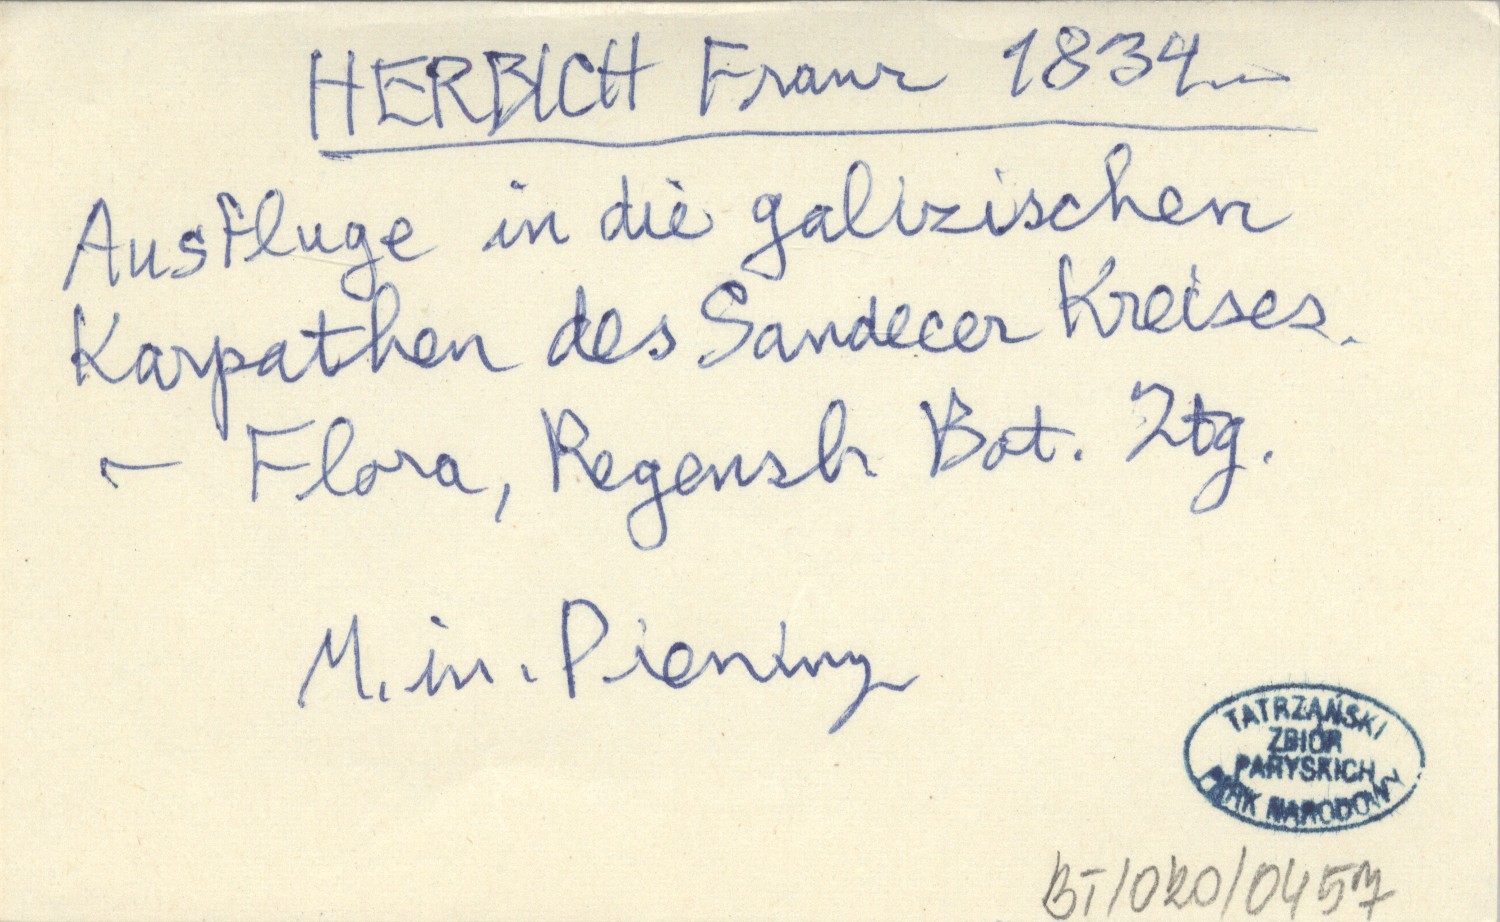 HERBICH Franz 1834.—
Ausfluge in die galizischen
Karpathen des Sandecer Kreises.
— Flora, Regensb. Bot. Ztg.
M. in. Pieniny
TATRZAŃSKI
ZBIÓR
PARYSKICH
PARK NARODOWY
BT/020/0457